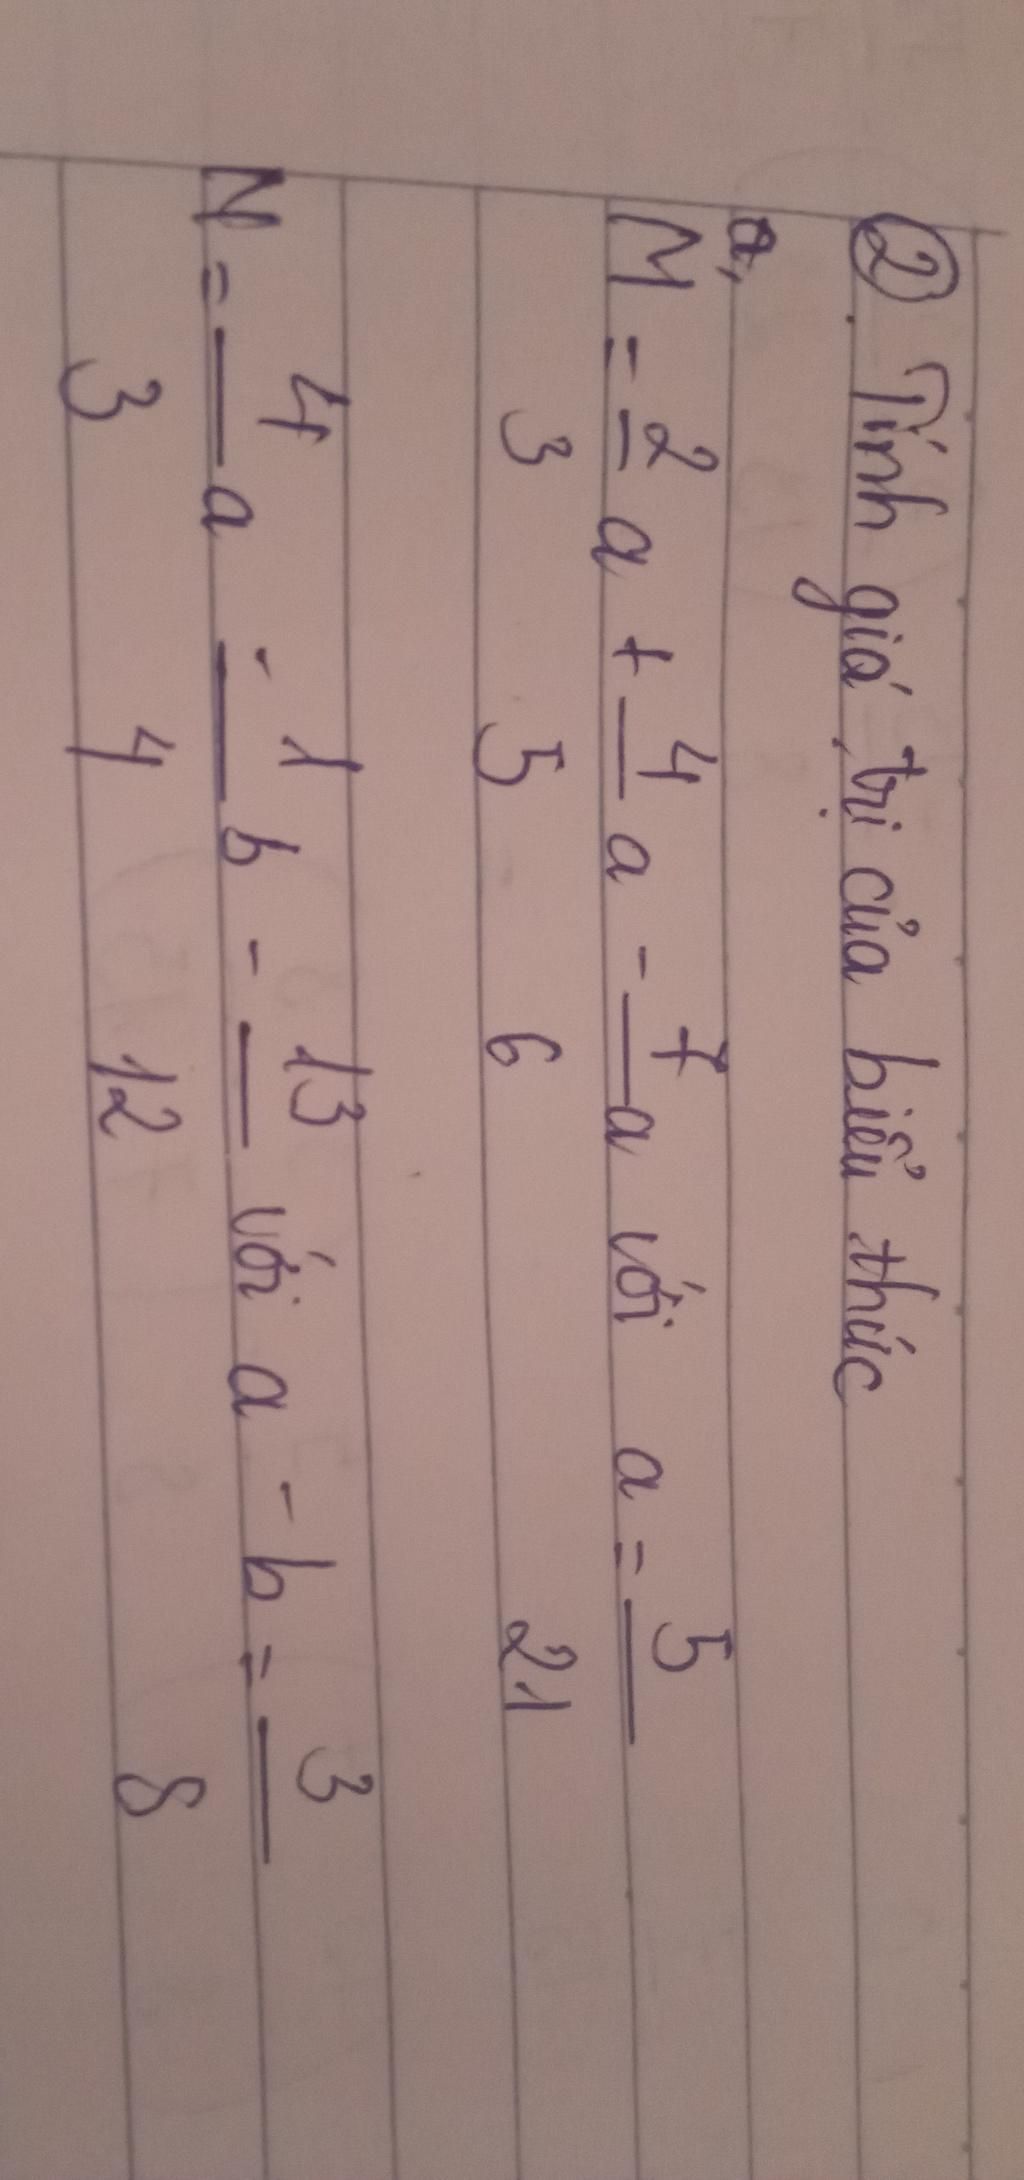 ② Tính giá trị của biểu thức
a,
M = 2/3 a + 4/5 a - 7/6 a với a = 5/21
N = 4/3 a - 1/4 b - 13/12 với a - b = 3/8